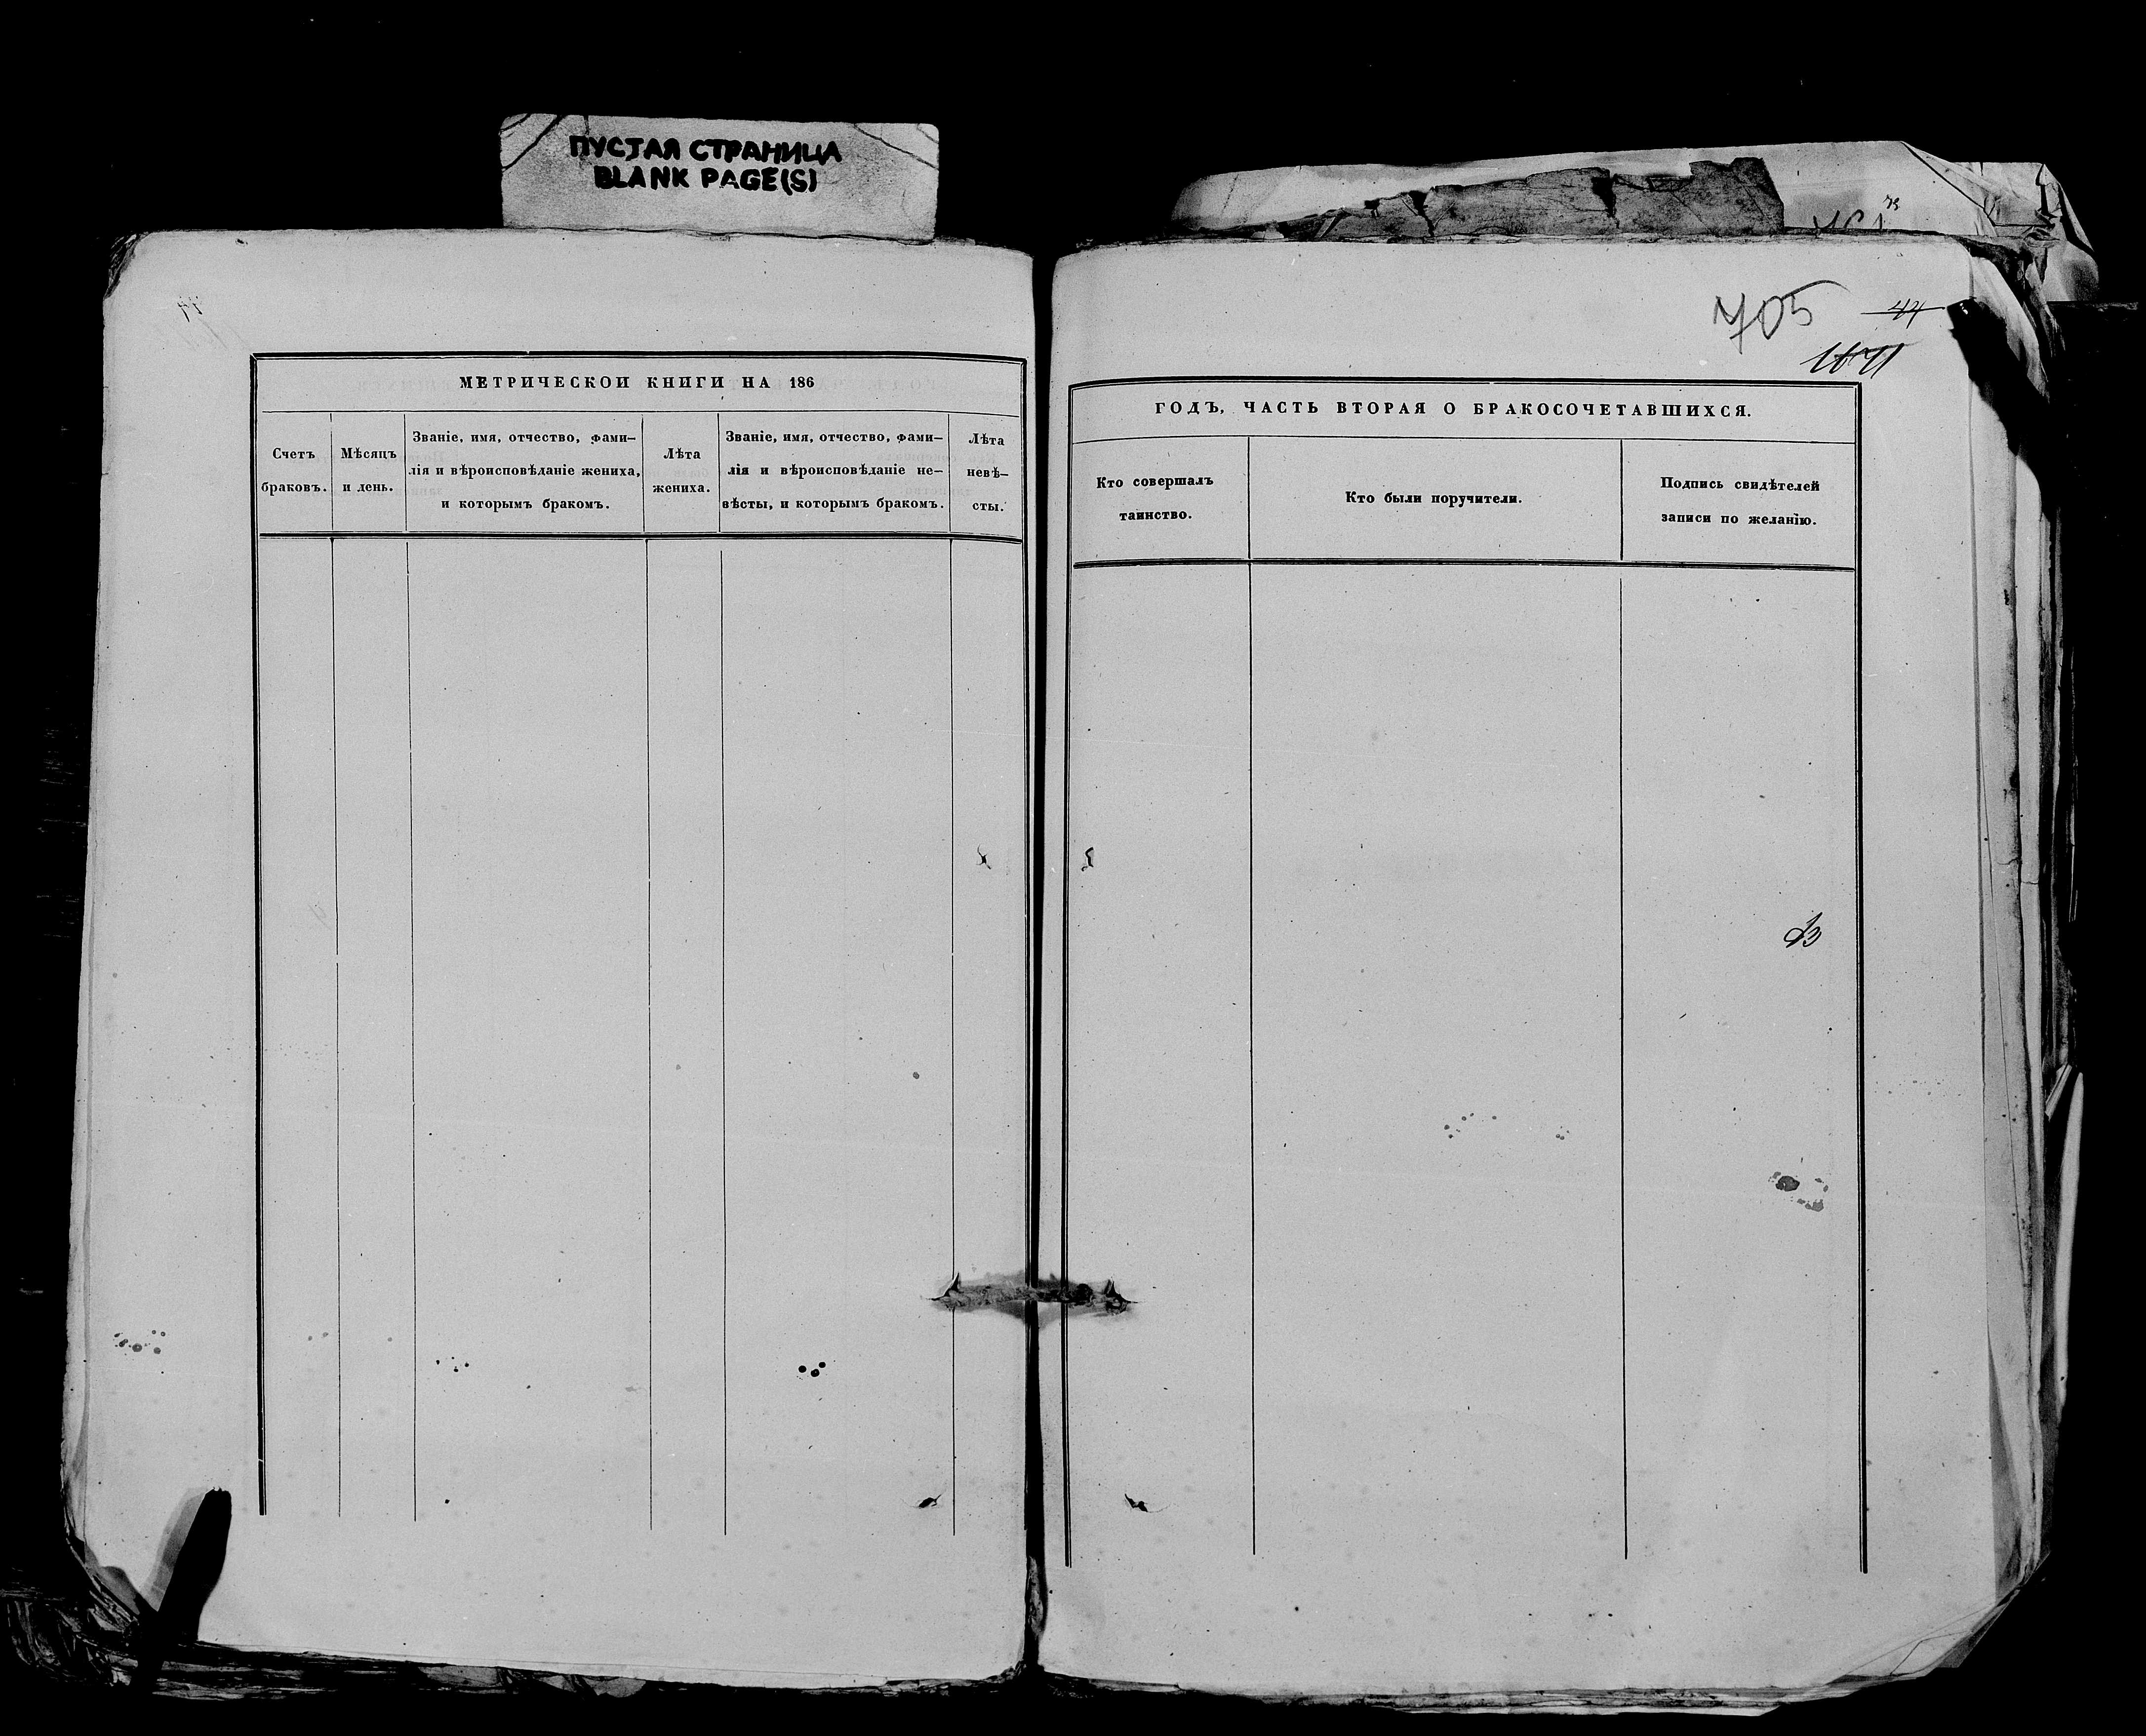 ПУСТАЯ СТРАНИЦА
BLANK PAGE(S)
МЕТРИЧЕСКОИ КНИГИ НА 186
Счетъ
браковъ.
Мѣсяцъ
и день.
Званіе, имя, отчество, фами–
лія и вѣроисповѣданіе жениха,
и которымъ бракомъ.
Лѣта
жениха.
Званіе, имя, отчество, фами–
лія и вѣроисповѣданіе не–
вѣсты, и которымъ бракомъ.
Лѣта
невѣ–
сты.
705
44
ГОДЪ, ЧАСТЬ ВТОРАЯ О БРАКОСОЧЕТАВШИХСЯ.
Кто совершалъ
таинство.
Кто были поручители.
Подпись свидѣтелей
записи по желанію.